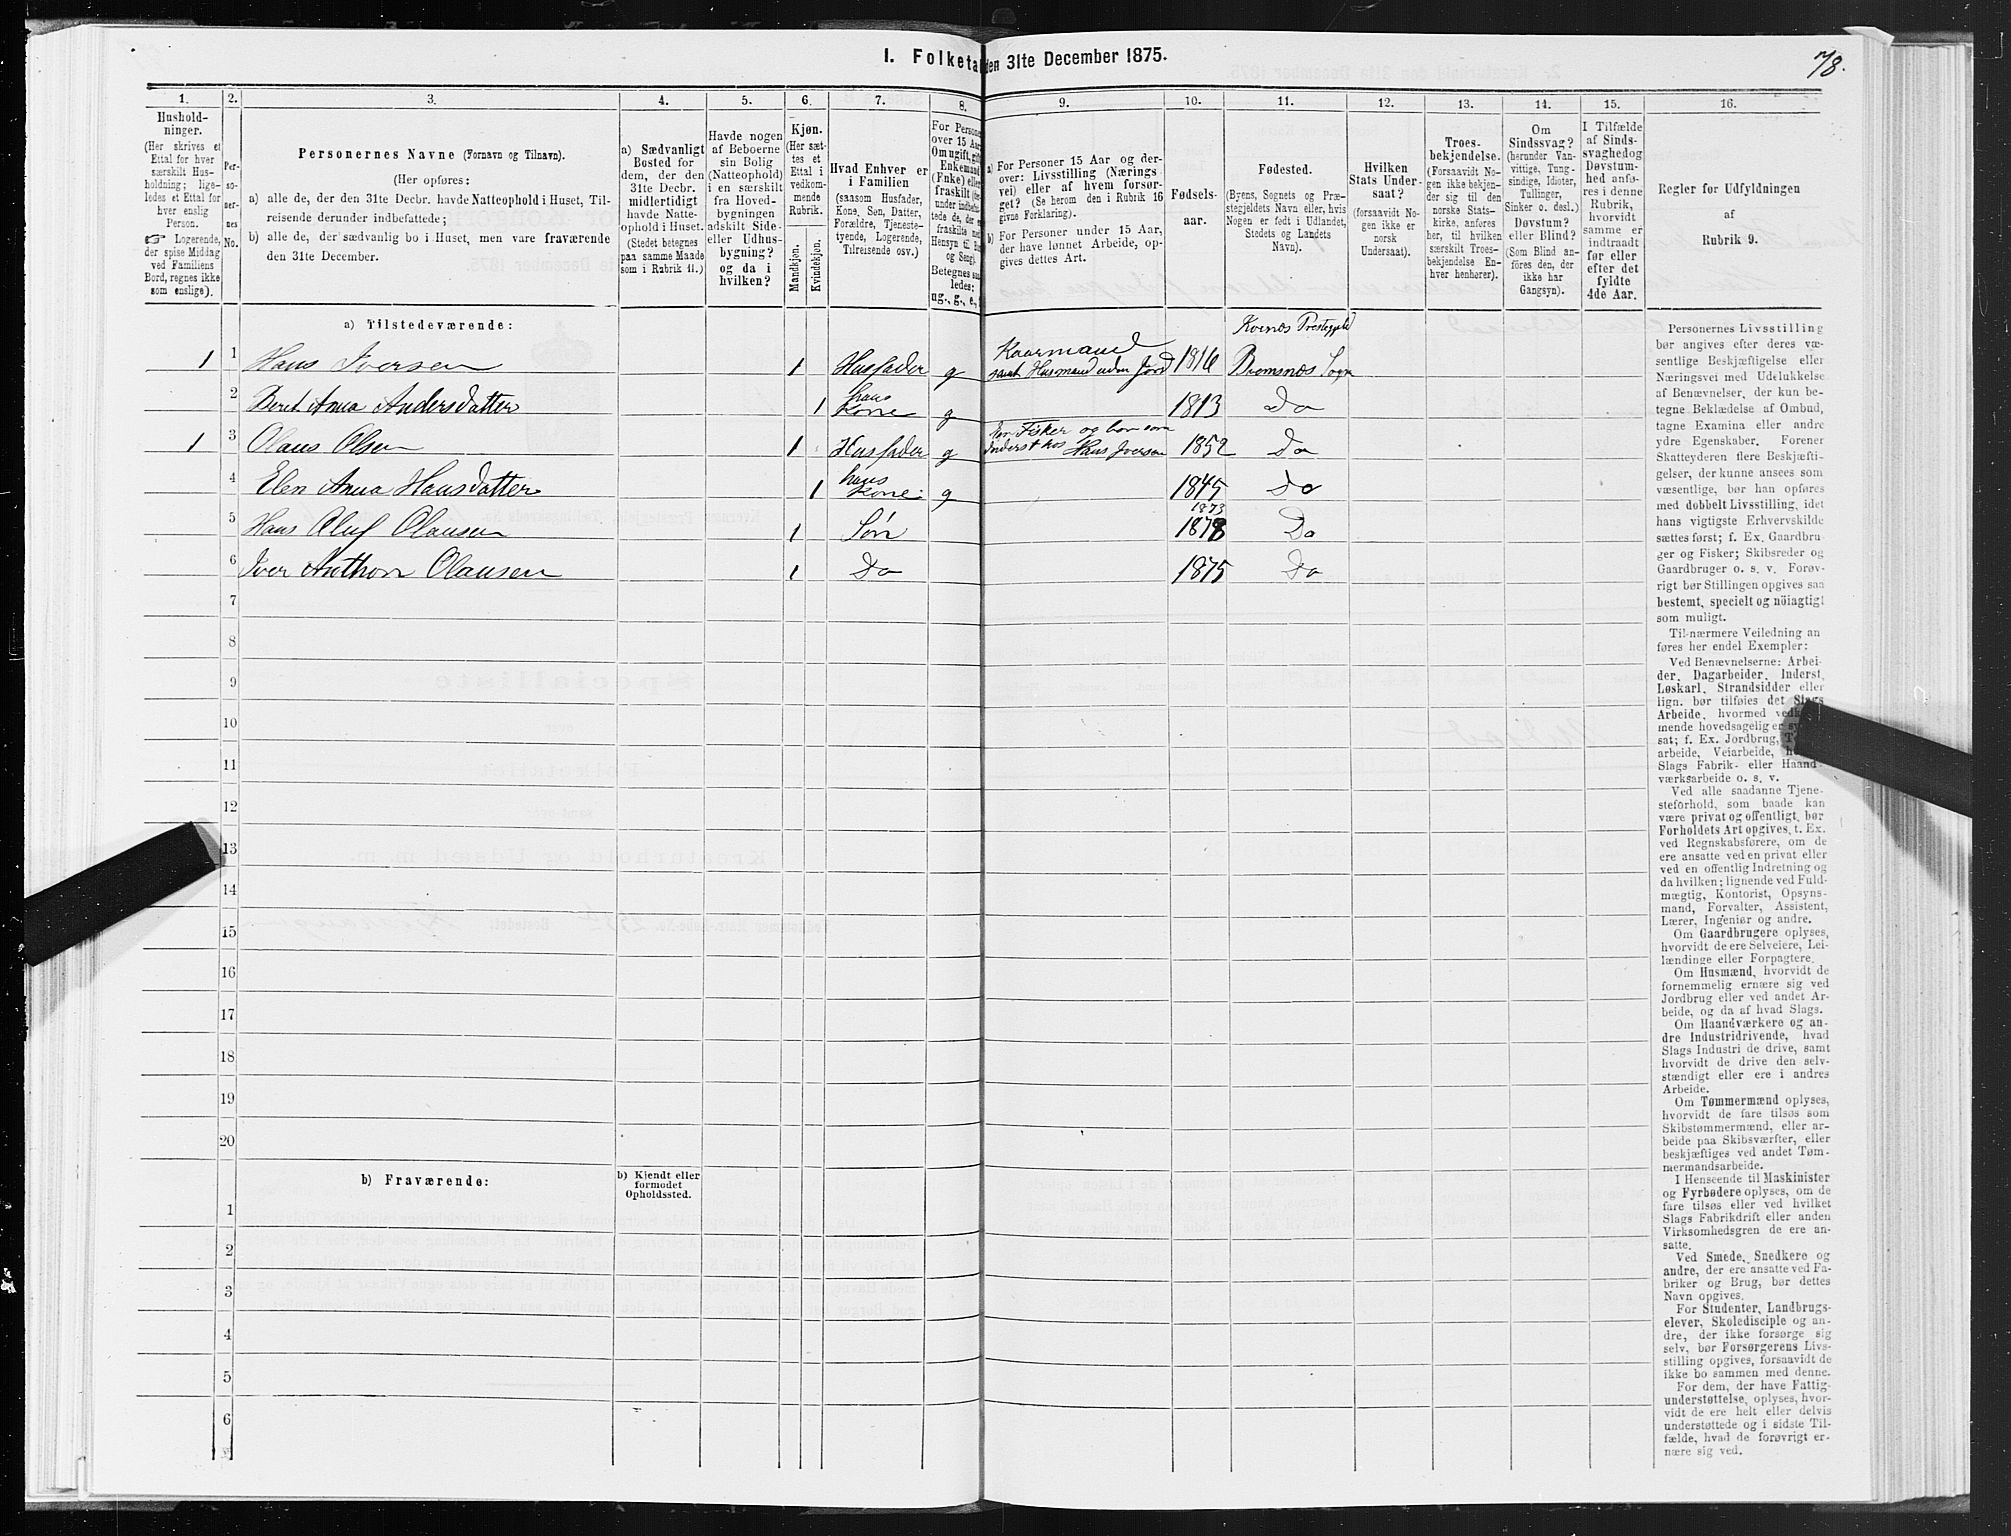 I. Folketal den 31te December 1875.
78.
1. 2. 3. 4. 5. 6. 7. 8. 9. 10. 11. 12. 13. 14. 15. 16.
Hushold-
ninger.
(Her skrives et
Ettal for hver
særskilt Hus-
holdning; lige-
ledes et Ettal for
hver enslig
Person.
☞ Logerende,
der spise Middag
ved Familiens
Bord, regnes ikke
som enslige).
Per-
so-
ner-
nes
No.
Personernes Navne (Fornavn og Tilnavn).
(Her opføres:
a) alle de, der den 31te Decbr. havde Natteophold i Huset, Til-
reisende derunder indbefattede;
b) alle de, der sædvanlig bo i Huset, men vare fraværende
den 31te December.
a) Sædvanligt
Bosted for
dem, der den
31te Decbr.
midlertidigt
havde Natte-
ophold i Huset.
(Stedet betegnes
paa samme Maade
som i Rubrik 11.)
Havde nogen
af Beboerne
sin Bolig
(Natteophold)
i en særskilt
fra Hoved-
bygningen
adskilt Side-
eller Udhus-
bygning?
og da i
hvilken?
Kjøn.
(Her sæt-
tes et
Ettal i
vedkom-
mende
Rubrik.
Mandkjøn.
Kvindekjøn.
Hvad Enhver er
i Familien
(saasom Husfader,
Kone, Søn, Datter,
Forældre, Tjeneste-
tyende, Logerende,
Tilreisende osv.)
For Persone
over 15 Aar
Om ugift, gift
Enkemand
(Enke) eller
fraskilt (der-
Betegnes saa
ledes:
ug., g., e.,
a) For Personer 15 Aar og der-
over: Livsstilling (Nærings
vei) eller af hvem forsør-
get? (Se herom den i Rubrik 16
givne Forklaring).
b) For Personer under 15 Aar,
der have lønnet Arbeide, op-
gives dettes Art.
Fødsels-
aar.
Fødested.
(Byens, Sognets og Præ-
stegjeldets Navn eller, hvis
Nogen er født i Udlandet,
Stedets og Landets
Navn).
Hvilken
Stats Under-
saat?
(forsaavidt No-
gen ikke er
norsk
Undersaat).
Troes-
bekjendelse.
(Forsaavidt No-
gen ikke bekjen-
der sig til den
norske Stats-
kirke, anføres
her, til hvilken
særskilt Troes-
bekjendelse En-
hver henhører).
Om
Sindssvag?
(herunder Van-
vittige, Tung-
sindige, Idioter,
Tullinger,
Sinker o. desl.)
Døvstum?
eller Blind?
(Som Blind an-
føres den, der
ikke har
Gangsyn).
I Tilfælde
af Sinds-
svaghedog
Døvstum-
hed anfø-
res i denne
Rubrik,
hvorvidt
samme er
indtraadt
før eller
efter det
fyldte
4de Aar.
Regler for Udfyldningen
af
Rubrik 9.
a) Tilstedeværende:
1 1 Hans Iversen 1 Husfader g Kaarmand samt Husmand uden Jord 1816 Kvernes Prestegjeld Bremsnes Sogn
2 Beret Anna Andersdatter 1 hans Kone g 1813 Do
1 3 Olaus Olsen 1 Husfader g Fisker og bor som Inderst hos Hans Iversen 1852 Do
4 Elen Anna Hansdatter 1 hans Kone g 1845 Do
5 Hans Oluf Olausen 1 Søn 1873 Do
6 Iver Anthon Olausen 1 Do 1875 Do
7
8
9
10
11
12
13
14
15
16
17
18
19
20
b) Fraværende:
b) Kjendt eller
formodet
Opholdssted.
1
2
3
4
5
6
Personernes Livsstilling
bør angives efter deres væ-
sentlige Beskjæftigelse eller
Næringsvei med Udelukkelse
af Benævnelser, der kun be-
tegne Beklædelse af Ombud,
tagne Examina eller andre
ydre Egenskaber. Forener
Skatteyderen flere Beskjæfti-
gelser, der kunne ansees som
væsentlige, bør han opføres
med dobbelt Livsstilling, idet
hans vigtigste Erhvervskilde
sættes først; f. Ex. Gaardbru-
ger og Fisker; Skibsreder og
Gaardbruger o. s. v. Forøv-
rigt bør Stillingen opgives saa
bestemt, specielt og nöiagtigt
som muligt.
Til nærmere Veiledning an
føres her endel Exempler:
Ved Benævnelserne: Arbei-
der, Dagarbeider, Inderst,
Løskarl, Strandsidder eller
lign. bør tilføies det Slags
Arbeide, hvormed vedkom-
mende hovedsagelig er sy
sat; f. Ex. Jordbrug,
arbeide, Veiarbeide,
Slags Fabrik- eller Haand-
værksarbeide o. s. v.
Ved alle saadanne Tjene-
steforhold, som baade kan
være privat og offentligt, bør
Forholdets Art opgives, t. Ex.
ved Regnskabsførere, om de
ere ansatte ved en privat eller
ved en offentlig Indretning og
da hvilken; lignende ved Fuld-
mægtig, Kontorist, Opsyns-
mand, Forvalter, Assistent,
Lærer, Ingeniør og andre.
Om Gaardbrugere oplyses,
hvorvidt de ere Selveiere, Lei-
lændinge eller Forpagtere.
Om Husmænd, hvorvidt de
fornemmelig ernære sig ved
Jordbrug eller ved andet Ar-
beide, og da af hvad Slags.
Om Haandværkere og an-
dre Industridrivende, hvad
Slags Industri de drive, samt
hvorvidt de drive den selv-
stændigt eller ere i andres
Arbeide.
Om Tømmermænd oplyses,
hvorvidt de fare tilsøs som
Skibstømmermænd, eller ar-
beide paa Skibsværfter, eller
beskjæftiges ved andet Tøm-
mermandsarbeide.
I Henseende til Maskinister
og Fyrbødere oplyses, om de
fare tilsøs eller ved hvilket
Slags Fabrikdrift eller anden
Virksomhedsgren de ere an-
satte.
Ved Smede, Snedkere og
andre, der ere ansatte ved Fa-
briker og Brug, bør dettes
Navn opgives.
For Studenter, Landbrugs-
elever, Skoledisciple og an-
dre, der ikke forsørge sig
selv, bør Forsørgerens Livs-
stilling opgives, forsaavidt de
ikke bo sammen med denne.
For dem, der have Fattig-
understøttelse, oplyses, hvor-
vidt de ere helt eller delvis
understøttede og i sidste Til-
fælde, hvad de forøvrigt er-
nære sig ved.